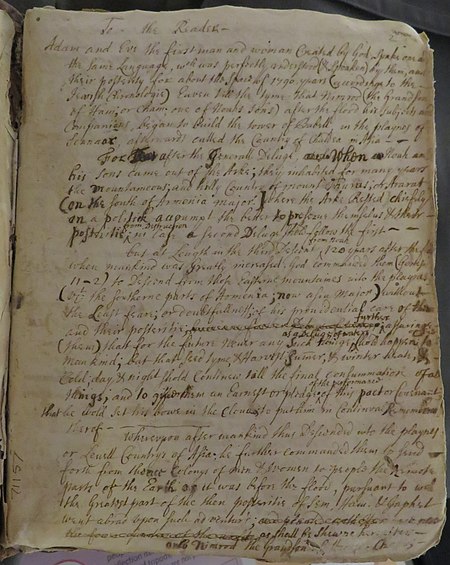 To the Reader
Adam and Eve the first man and woman Created by God, spake one &
the same Language, wch was perfectly understood (& spoken) by them, and
their posterity for about the space of 1790 years (according to the
Jewish Chronologie) Euen till the tyme that Nimrod the Grandson
of Ham, or Cham one of Noahs sons) after the flood his subjects &
Companions, began to build the tower of Babell in the playnes of
Shinnar afterwards called the Country of Chaldea in Asia
For after the Generall Deluge, When Noah and
his sons came out of the Arke, they inhabited for many years
the mountaineous, and hilly Country of mount Taurus, or Ararat
(on the South of Armenia major) where the Arke Rested chiefly
on a politick accoumpt the better to preserve themselves & their
posteritie from Destruction in case a second Deluge should follow the first
but at Length in the third 120 years after the
when mankind was Greatly increased, God commanded them
11-2) to Descend from those Eastern mountaines into the playnes
of the Southerne parts of Armenia; now Asia major) without
the Least feare, or doubtfulness, of his providential care of them
and their posterities further assuring
(them) that for the future never any such things should happen to
mankind; but that seed tyme, & Harvest, Sumer, & winter heate, &
Cold, day, & night should Continew till the final consummation of all
things, and to give them an earnest or pledge of this pact or Covenant
that he wold set his bowe in the Clowds to put him in Continuall Remembrance
thereof
Whereupon after mankind thus Descended into the playnes
or Lower Countrys of Asia he further commanded them to send
forth from thence Colonys of men & women to people the Remote
parts of the Earth as it was before the flood, pursuant to wch
the Greatest part of the then posterities of Sem, Ham, & Japhet
went abrod upon such adventure;
as shall be shewne hereafter
Nimrod the Grandson
71157